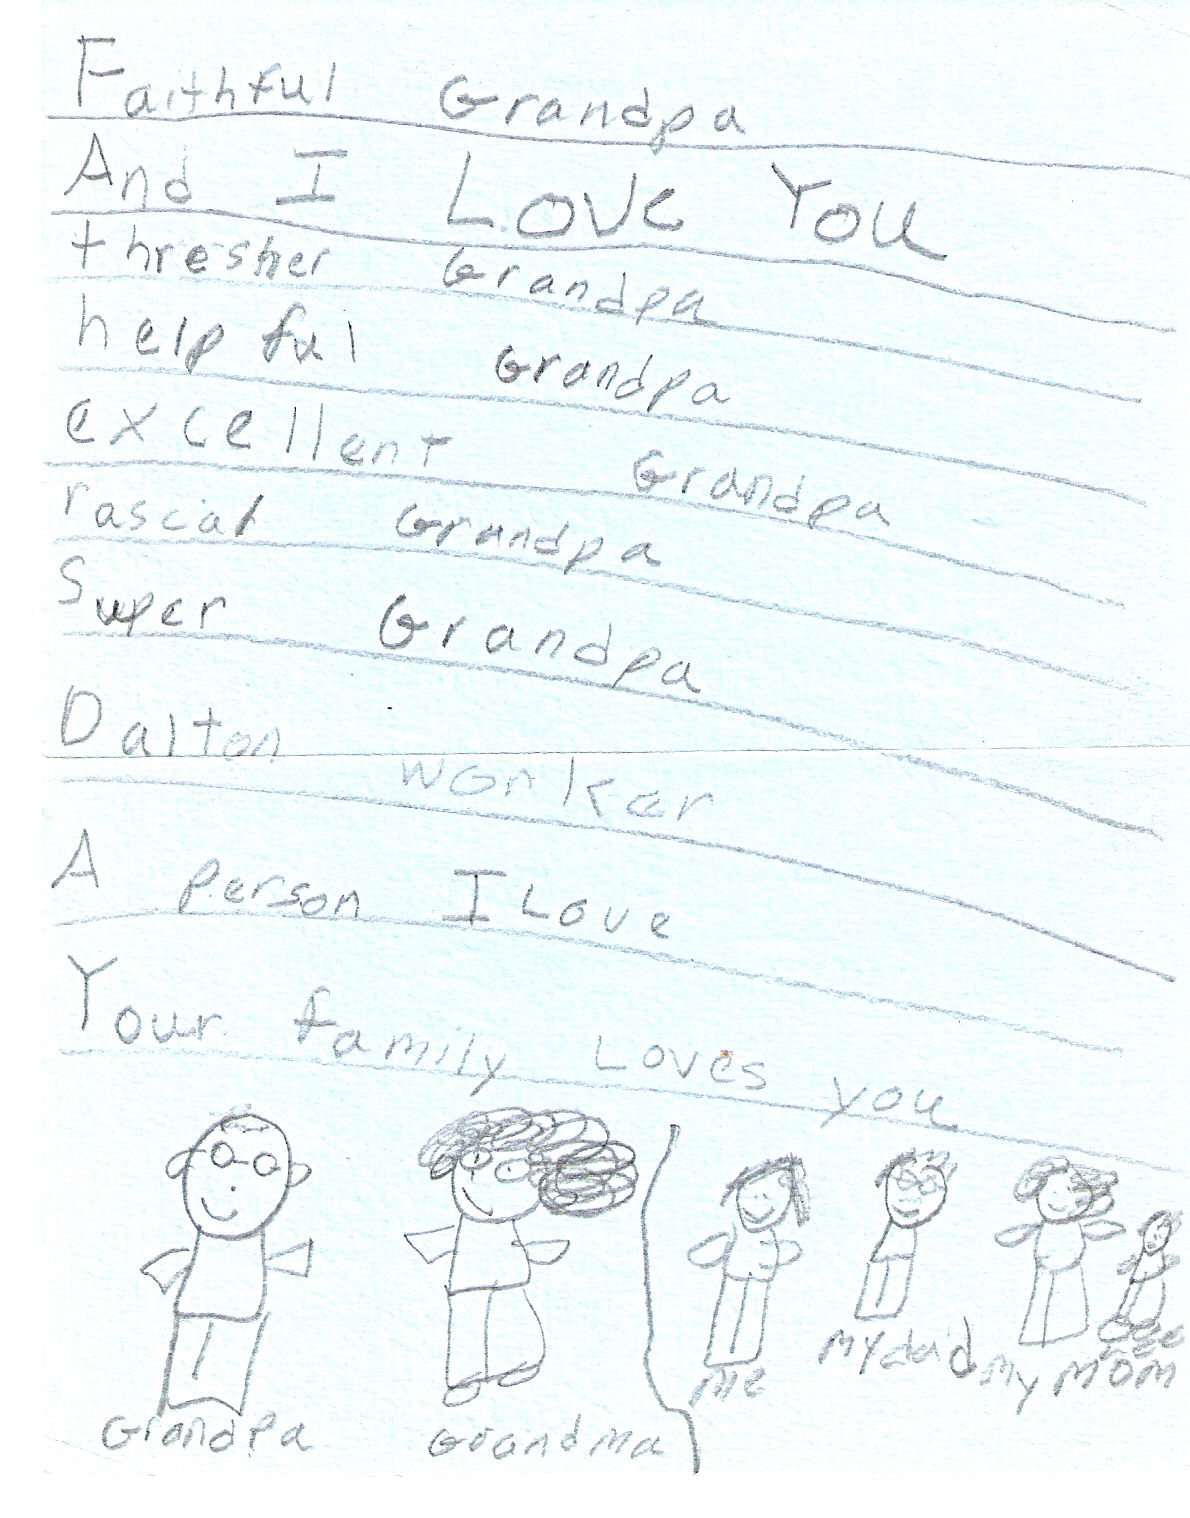 Faithful Grandpa
And I Love You
thresher Grandpa
helpful Grandpa
excellent Grandpa
rascal Grandpa
Super Grandpa
Dalton worker
A person I Love
Your family Loves you
Grandpa Grandma me my dad my mom